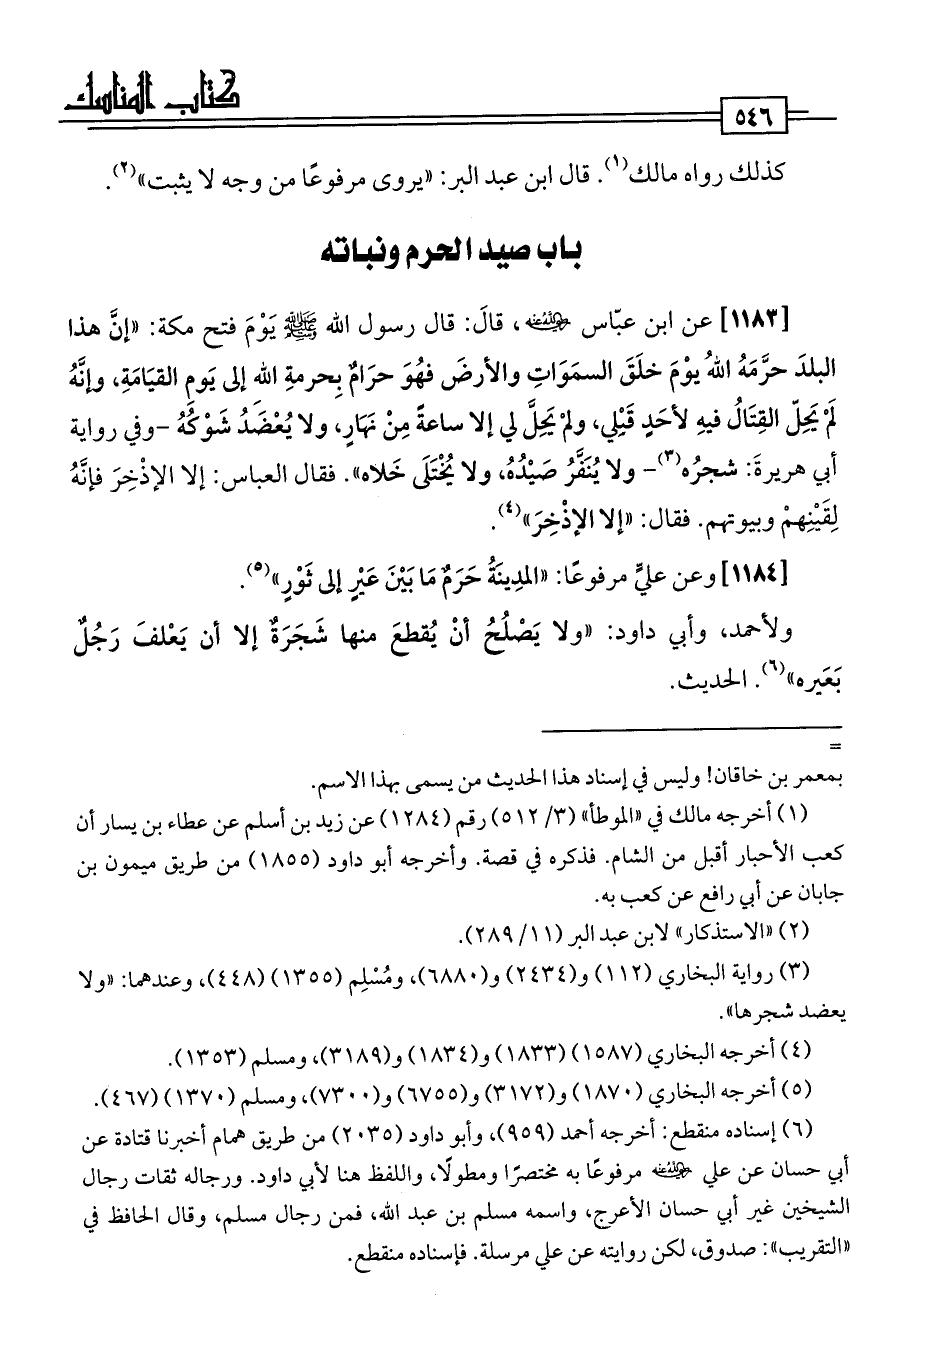 كتاب المناسك
٥٤٦
كذلك رواه مالك(١). قال ابن عبد البر: «يروى مرفوعًا من وجه لا يثبت»(٢).
باب صيد الحرم ونباته
[١١٨٣] عن ابن عبّاس رضي الله عنه، قالَ: قال رسول الله ﷺ يَوْمَ فتح مكة: «إنَّ هذا
البلدَ حرَّمَهُ اللهُ يوْمَ خلَقَ السمَوَاتِ والأرضَ فهُوَ حرَامٌ بِحرمةِ الله إلى يَومِ القيَامَةِ، وإنَّهُ
لَمْ يَحِلّ القِتَالُ فيهِ لأحَدٍ قَبْلِي، ولمْ يَحِلَّ لي إلا ساعةً مِنْ نهَارٍ، ولا يُعْضَدُ شَوْكُهُ -وفي رواية
أبي هريرةَ: شجرُه(٣)- ولا يُنَفَّرُ صَيْدُهُ، ولا يُخْتَلَى خَلاه». فقال العباس: إلا الإذْخِرَ فإنَّهُ
لِقَيْنِهِمْ وبيوتهم. فقال: «إلا الإذْخِرَ»(٤).
[١١٨٤] وعن عليٍّ مرفوعًا: «المدِينَةُ حَرَمٌ مَا بَيْنَ عَيْرٍ إلى ثَوْرٍ»(٥).
ولأحمد، وأبي داود: «ولا يَصْلُحُ أنْ يُقطعَ منها شَجَرَةٌ إلا أن يَعْلفَ رَجُلٌ
بَعَيره»(٦). الحديث.
=
بمعمر بن خاقان! وليس في إسناد هذا الحديث من يسمى بهذا الاسم.
(١) أخرجه مالك في «الموطأ» (٣/ ٥١٢) رقم (١٢٨٤) عن زيد بن أسلم عن عطاء بن يسار أن
كعب الأحبار أقبل من الشام. فذكره في قصة. وأخرجه أبو داود (١٨٥٥) من طريق ميمون بن
جابان عن أبي رافع عن كعب به.
(٢) «الاستذكار» لابن عبد البر (١١/ ٢٨٩).
(٣) رواية البخاري (١١٢) و(٢٤٣٤) و(٦٨٨٠)، ومُسْلِم (١٣٥٥) (٤٤٨)، وعندهما: «ولا
يعضد شجرها».
(٤) أخرجه البخاري (١٥٨٧) (١٨٣٣) و(١٨٣٤) و(٣١٨٩)، ومسلم (١٣٥٣).
(٥) أخرجه البخاري (١٨٧٠) و(٣١٧٢) و(٦٧٥٥) و(٧٣٠٠)، ومسلم (١٣٧٠) (٤٦٧).
(٦) إسناده منقطع: أخرجه أحمد (٩٥٩)، وأبو داود (٢٠٣٥) من طريق همام أخبرنا قتادة عن
أبي حسان عن علي رضي الله عنه مرفوعًا به مختصرًا ومطولًا، واللفظ هنا لأبي داود. ورجاله ثقات رجال
الشيخين غير أبي حسان الأعرج، واسمه مسلم بن عبد الله، فمن رجال مسلم، وقال الحافظ في
«التقريب»: صدوق، لكن روايته عن علي مرسلة. فإسناده منقطع.